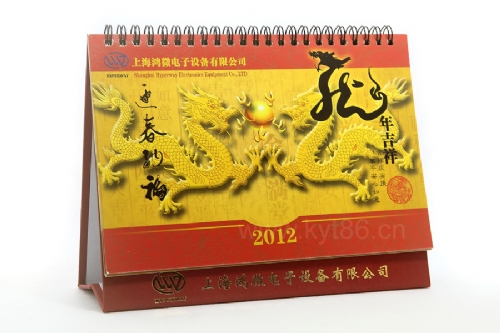 上海鸿微电子设备有限公司
Shanghai Hyperway Electronics Equipment Co.,LTD
HYPERWAY
迎春纳福
龙
年吉祥
2012
www.kyt86.cn
上海鸿微电子设备有限公司